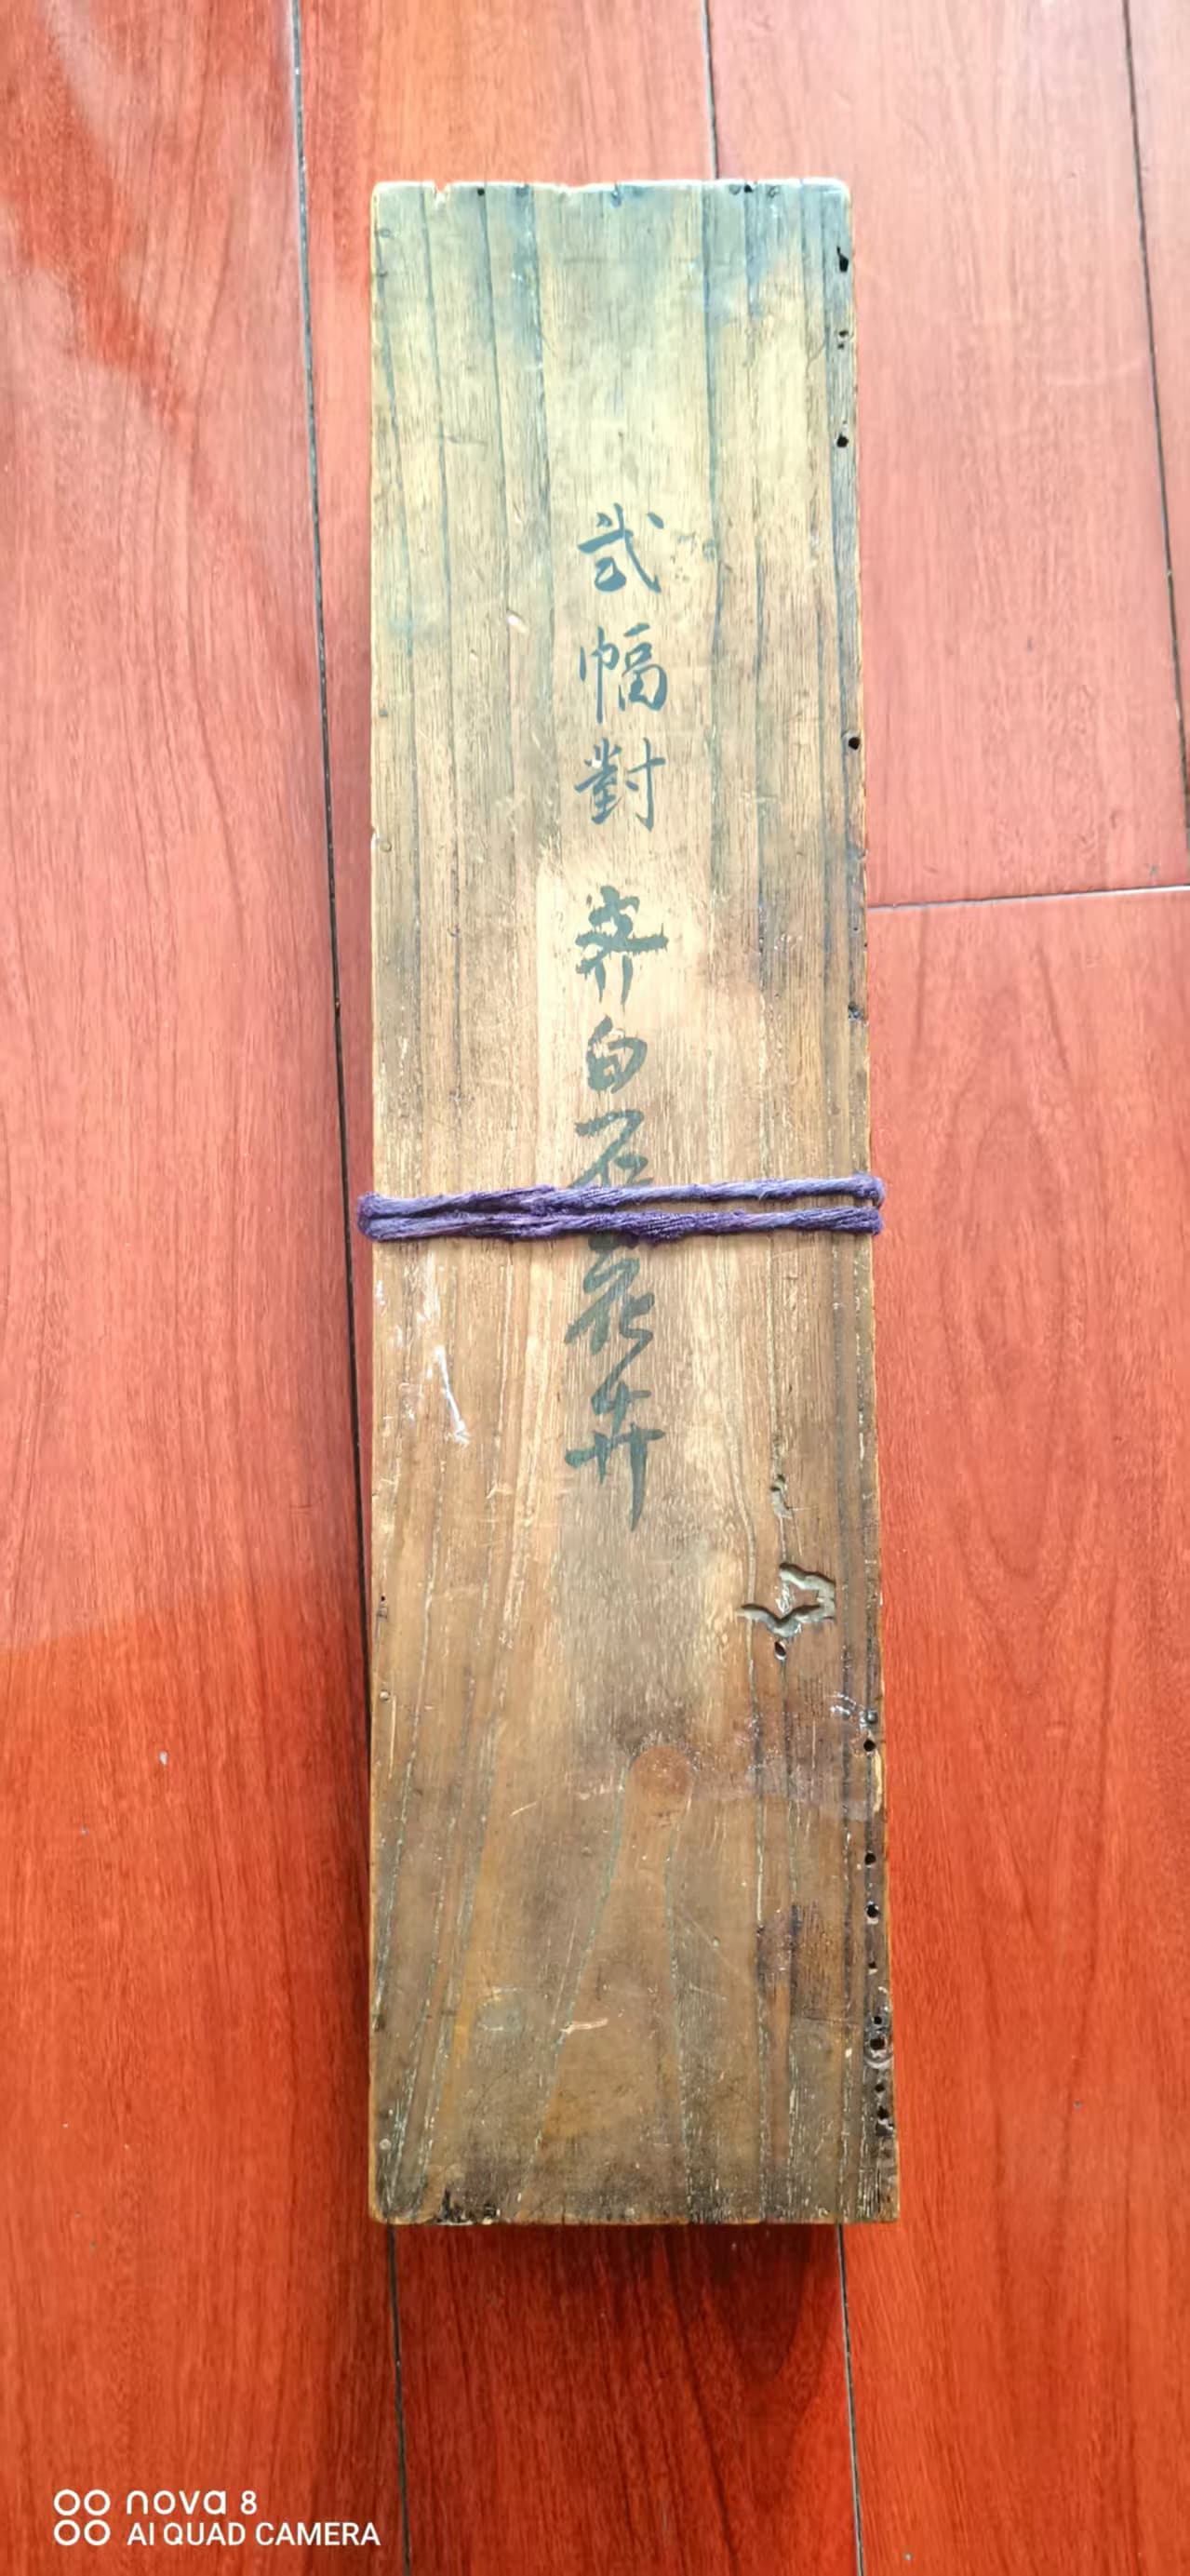 弍幅對 齐白石花卉
nova 8
AI QUAD CAMERA